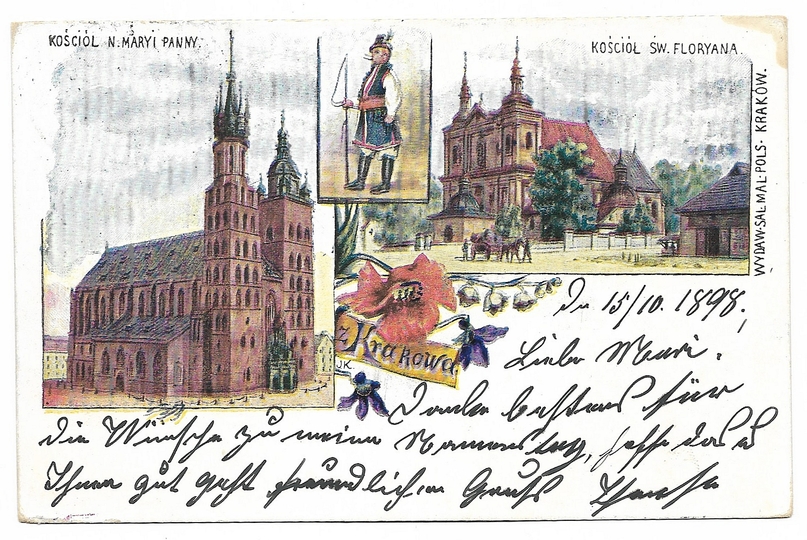 KOŚCIÓŁ N. MARYI PANNY.
KOŚCIÓŁ ŚW. FLORYANA.
WYDAW·SAL·MAL·POLS· KRAKÓW.
z Krakowa
JK.
15/10. 1898.
Liebe Meuri.
Danke bestens für
die Wünsche zu meinem Namenstag, hoffe das es
Ihnen gut geht freundlichen Gruß